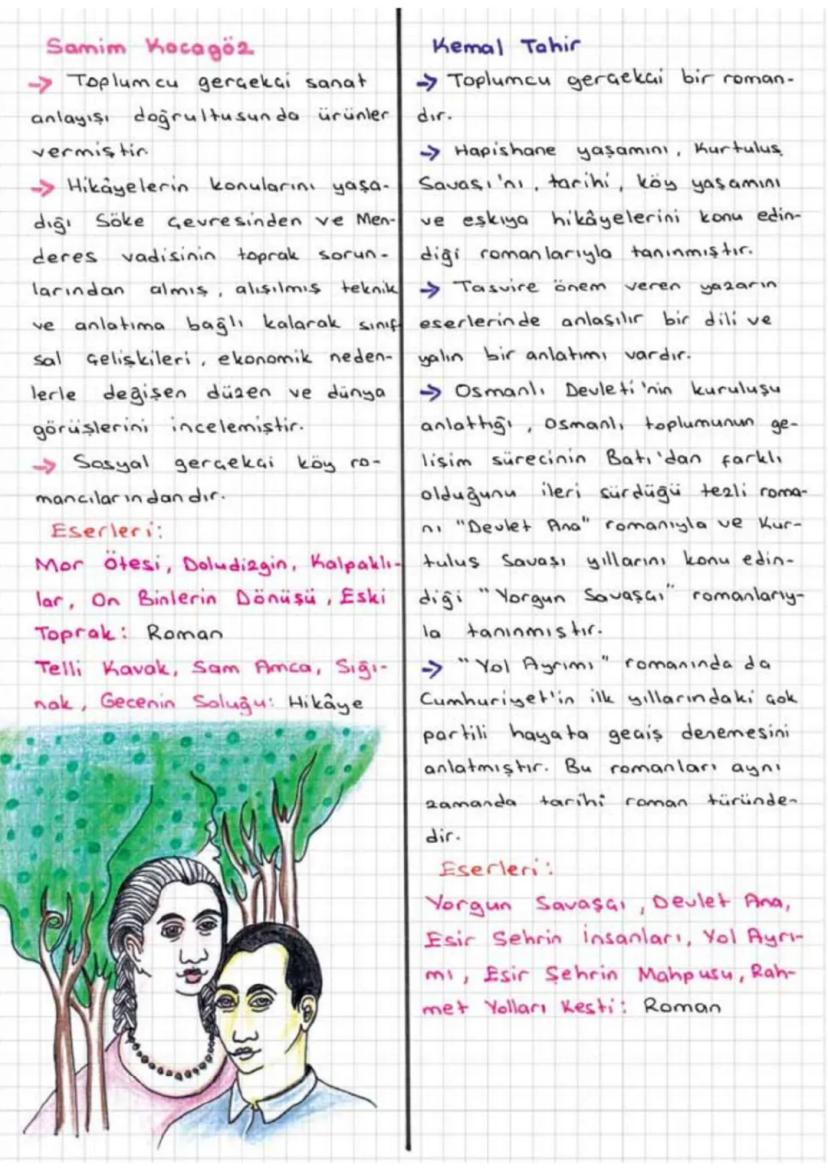 Samim Kocagöz
→ Toplumcu gerçekçi sanat
anlayışı doğrultusunda ürünler
vermiştir.
→ Hikâyelerin konularını yaşa-
dığı Söke çevresinden ve Men-
deres vadisinin toprak sorun-
larından almış, alışılmış teknik
ve anlatıma bağlı kalarak sınıf
sal çelişkileri, ekonomik neden-
lerle değişen düzen ve dünya
görüşlerini incelemiştir.
→ Sosyal gerçekçi köy ro-
mancılarındandır.
Eserleri:
Mor Ötesi, Doludizgin, Kalpaklı-
lar, On Binlerin Dönüşü, Eski
Toprak: Roman
Telli Kavak, Sam Amca, Sığı-
nak, Gecenin Soluğu: Hikâye
Kemal Tahir
→ Toplumcu gerçekçi bir roman-
dır.
→ Hapishane yaşamını, Kurtuluş
Savaşı'nı, tarihi, köy yaşamını
ve eşkıya hikâyelerini konu edin-
diği romanlarıyla tanınmıştır.
→ Tasvire önem veren yazarın
eserlerinde anlaşılır bir dili ve
yalın bir anlatımı vardır.
→ Osmanlı Devleti'nin kuruluşu
anlattığı, Osmanlı toplumunun ge-
lişim sürecinin Batı'dan farklı
olduğunu ileri sürdüğü tezli roma-
nı "Devlet Ana" romanıyla ve Kur-
tuluş Savaşı yıllarını konu edin-
diği "Yorgun Savaşçı" romanlarıy-
la tanınmıştır.
→ "Yol Ayrımı" romanında da
Cumhuriyet'in ilk yıllarındaki çok
partili hayata geçiş denemesini
anlatmıştır. Bu romanları aynı
zamanda tarihi roman türünde-
dir.
Eserleri:
Yorgun Savaşçı, Devlet Ana,
Esir Şehrin İnsanları, Yol Ayrı-
mı, Esir Şehrin Mahpusu, Rah-
met Yolları Kesti: Roman